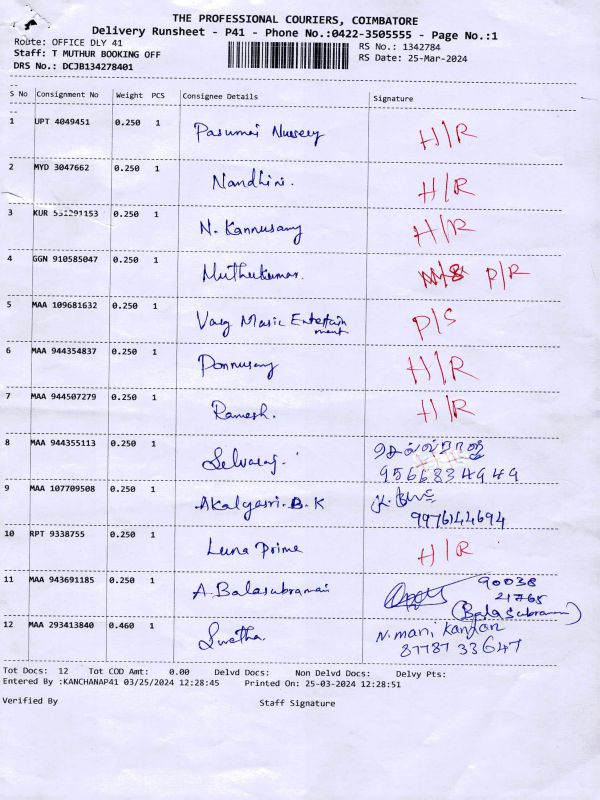 THE PROFESSIONAL COURIERS, COIMBATORE
Delivery Runsheet - P41 - Phone No.:0422-3505555 - Page No.:1
Route: OFFICE DLY 41
RS No.: 1342784
Staff: T MUTHUR BOOKING OFF
RS Date: 25-Mar-2024
DRS No.: DCJB134278401
S No Consignment No Weight PCS Consignee Details Signature
1 UPT 4049451 0.250 1 Pasumai Nursery H/R
2 MYD 3047662 0.250 1 Nandhini. H/R
3 KUR 551291153 0.250 1 N. Kannusamy H/R
4 GGN 910585047 0.250 1 Muthukumar. P/R
5 MAA 109681632 0.250 1 Music Entertainment P/S
6 MAA 944354837 0.250 1 Ponnusamy H/R
7 MAA 944507279 0.250 1 Ramesh. H/R
8 MAA 944355113 0.250 1 Selvaraj. செல்வராஜ்
9566834949
9 MAA 107709508 0.250 1 Akalyasri.B.K
9976144694
10 RPT 9338755 0.250 1 Luna Prime H/R
11 MAA 943691185 0.250 1 A.Balasubramani 90038
21765
(Balasubramani)
12 MAA 293413840 0.460 1 Swetha. N.mani kandan
8778733647
Tot Docs: 12 Tot COD Amt: 0.00 Delvd Docs: Non Delvd Docs: Delvy Pts:
Entered By :KANCHANAP41 03/25/2024 12:28:45 Printed On: 25-03-2024 12:28:51
Verified By Staff Signature